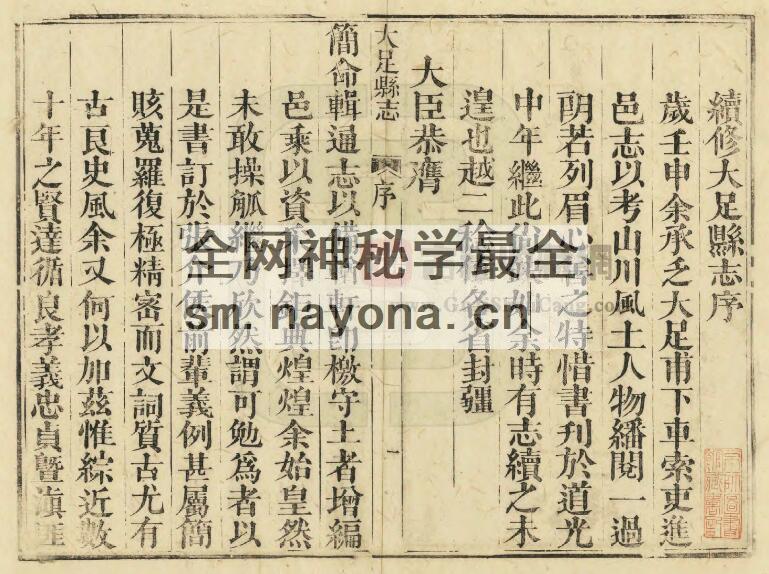 續修大足縣志序
歲壬申余承乏大足甫下車索吏進
邑志以考山川風土人物繙閱一過
朗若列眉心 之特惜書刋於道光
中年繼此 余時有志續之未
遑也越二 各省封疆
大臣恭膺
大足縣志 序
簡命輯通志以 檄守土者增編
邑乘以資 典煌煌余始皇然
未敢操觚繼乃欣然謂可勉爲者以
是書訂於張 前輩義例甚屬簡
賅蒐羅復極精密而文詞質古尤有
古良史風余又何以加茲惟綜近數
十年之賢達循良孝義忠貞曁
全网神秘学最全
sm. nayona. cn